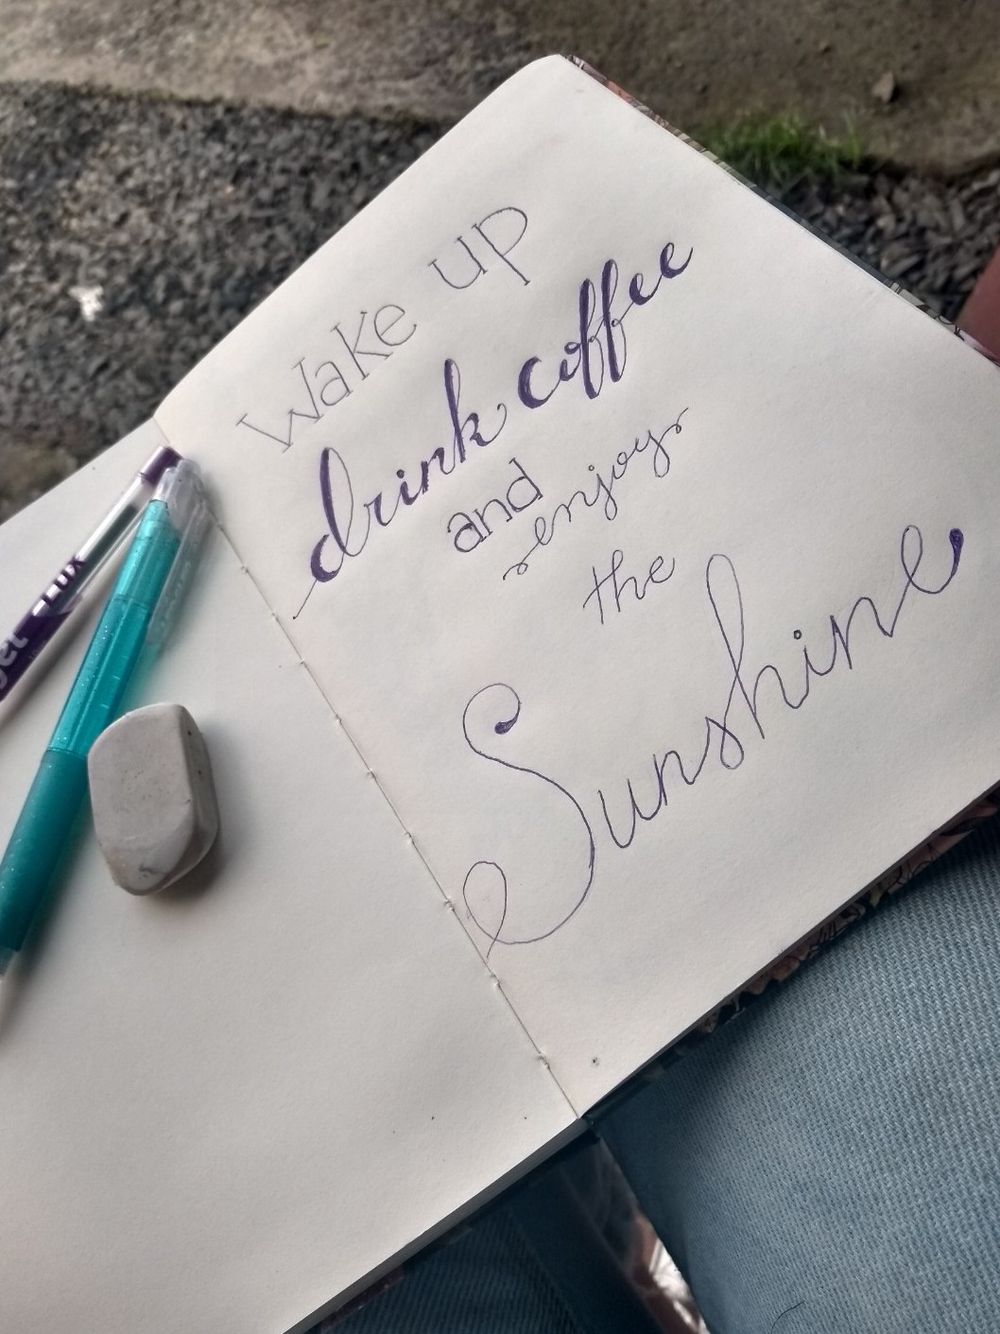 Wake up
drink coffee
and
enjoy
the
Sunshine